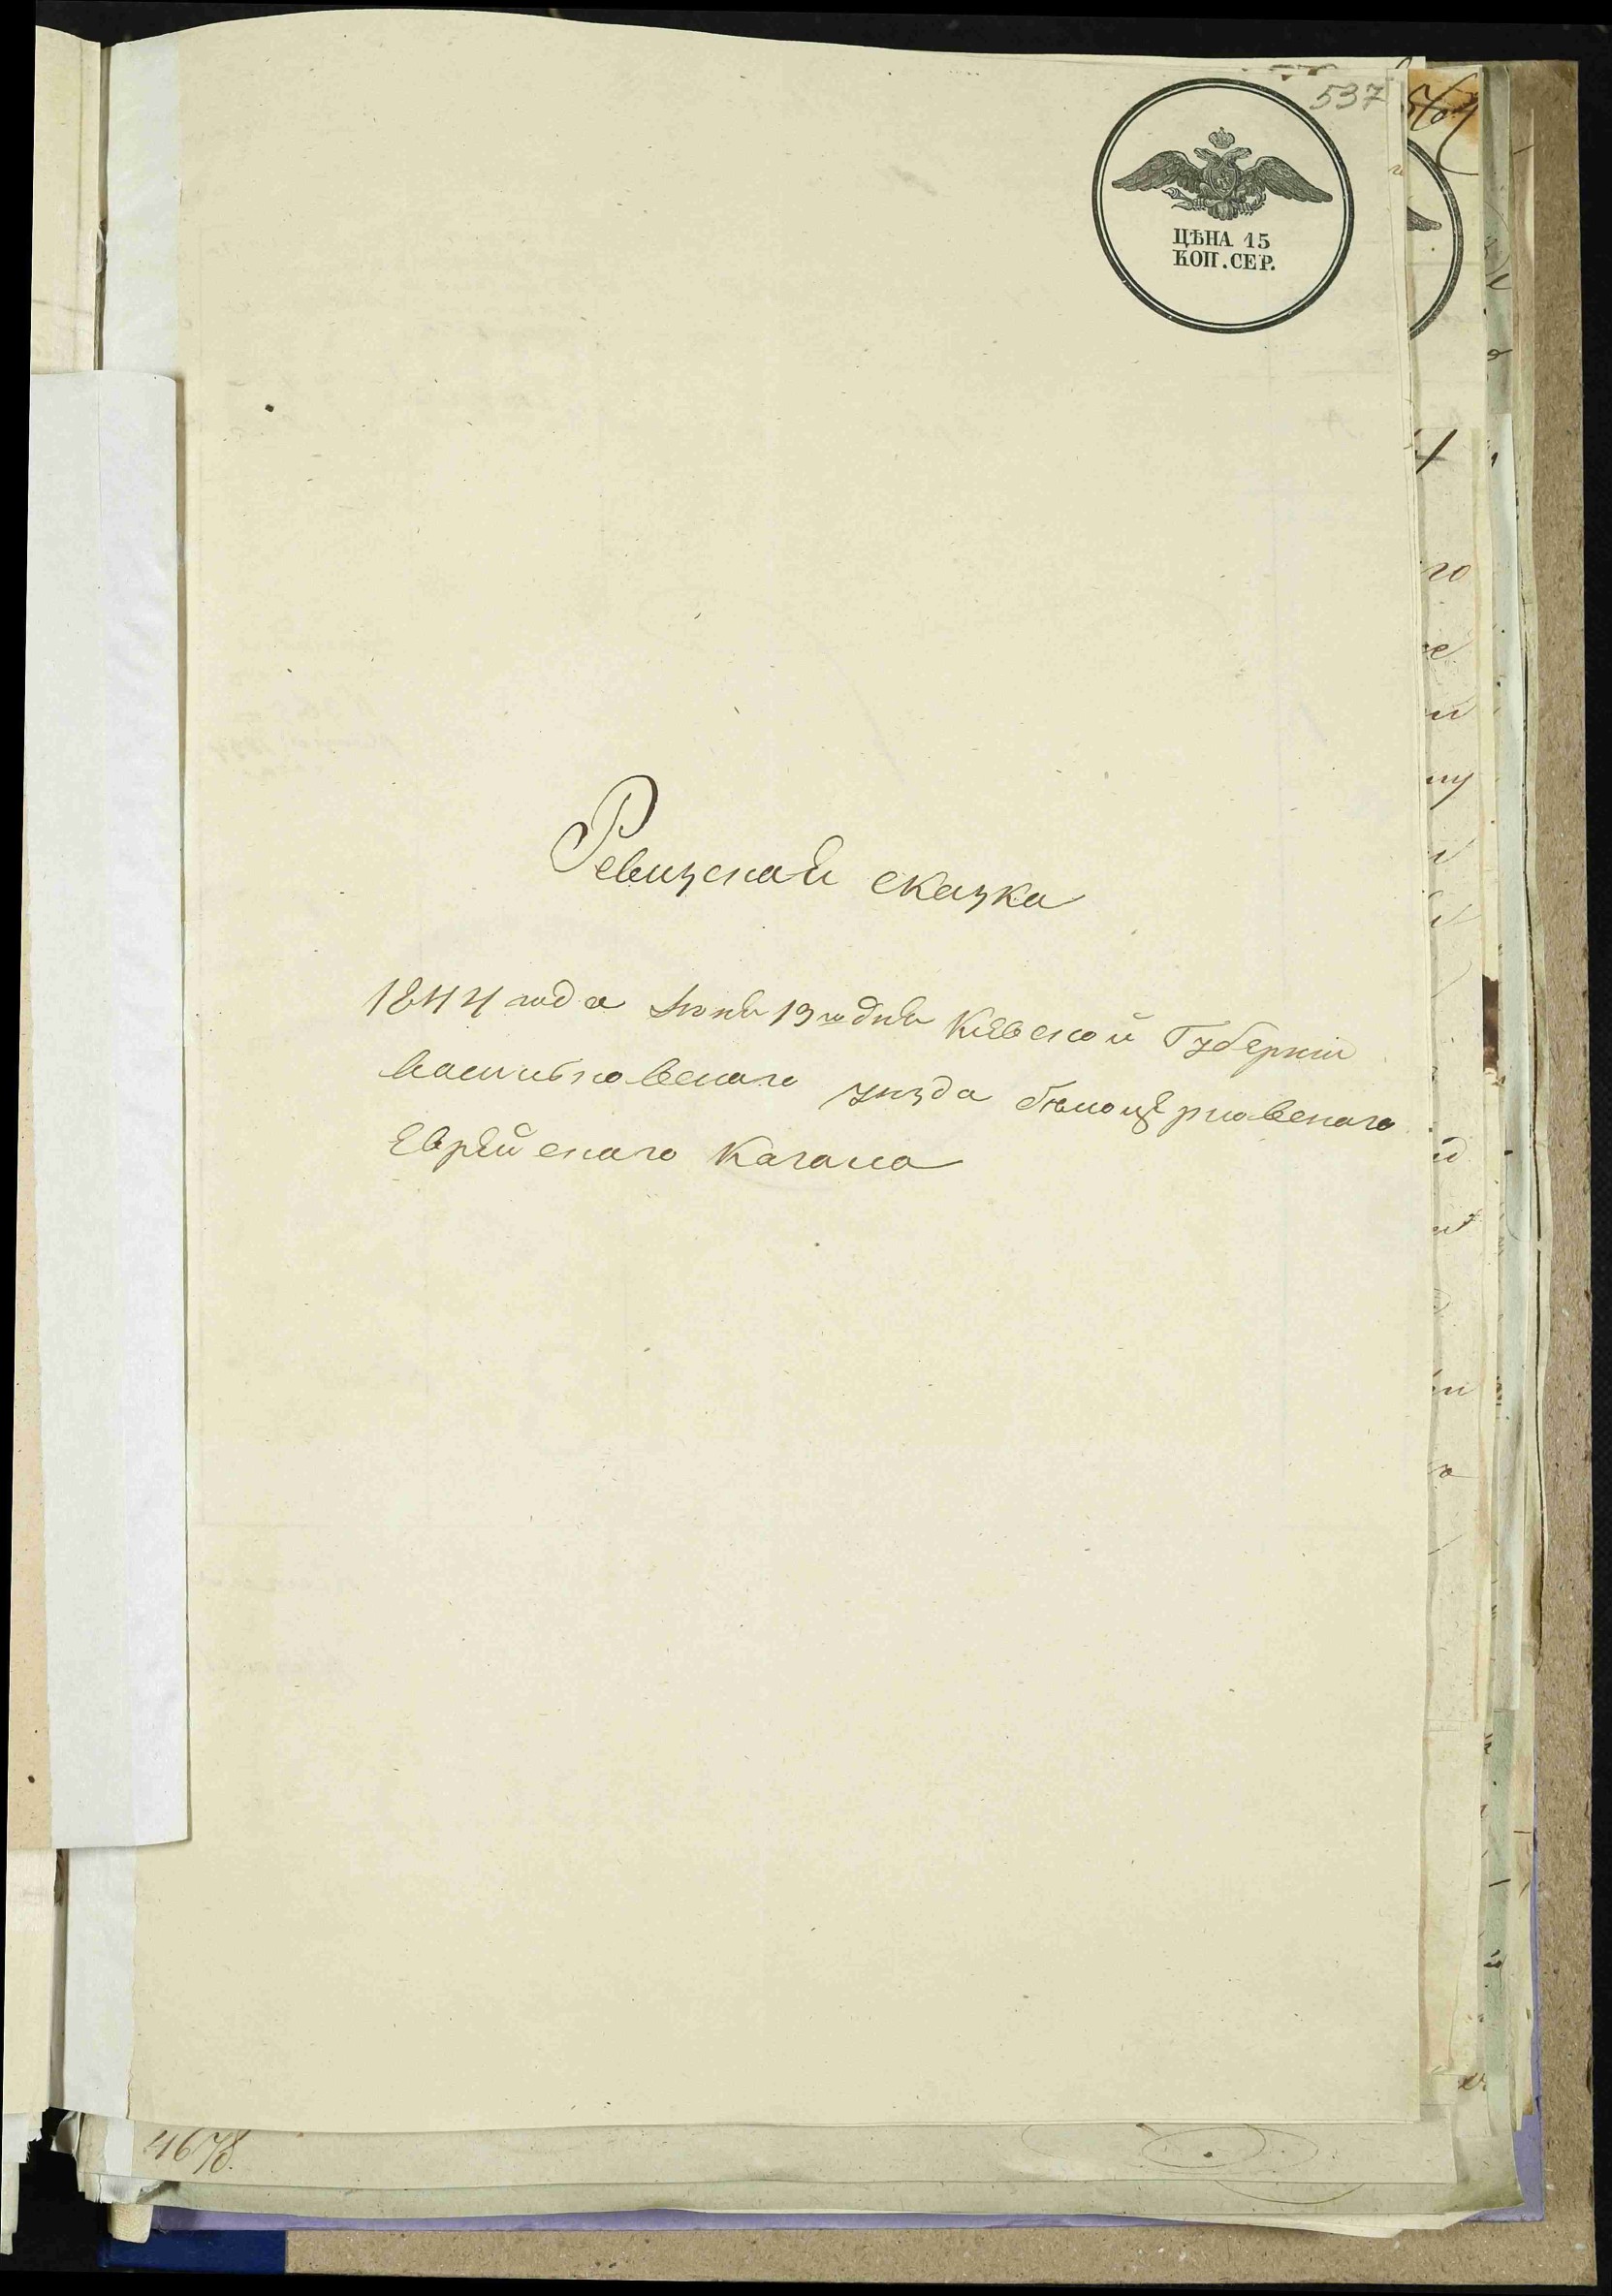 537
ЦѢНА 15
КОП. СЕР.
Ревизская сказка
1844 года Июня 13го дня Киевской Губернии
васильковскаго уѣзда бѣлоцерковскаго
Еврейскаго Кагала
4678.